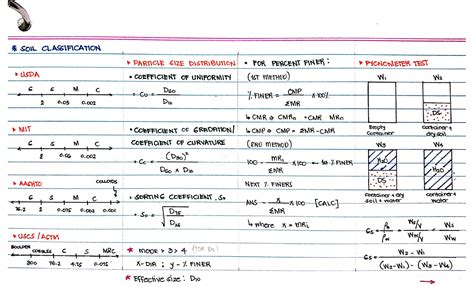 * SOIL CLASSIFICATION
▸ USDA
G S M C
2 0.05 0.002
▸ MIT
G S M C
2 0.06 0.002
▸ AASHTO
COLLOIDS
G S M C
76.2 2 0.075 0.002 0.001
▸ USCS / ASTM
BOULDER COBBLES G S M&C
300 76.2 4.75 0.075
▸ PARTICLE SIZE DISTRIBUTION
• COEFFICIENT OF UNIFORMITY
• Cu = D60 / D10
• COEFFICIENT OF GRADATION /
COEFFICIENT OF CURVATURE
• Cc = (D30)² / D60 x D10
• SORTING COEFFICIENT, So
• So = √ D75 / D25
* mode > 3 > 4
x-DIR ; y - % FINER
* Effective size: D10
• FOR PERCENT FINER:
(1ST METHOD)
% FINER = CMP / ΣMR x 100%
↳ CMP ⇒ ΣMR - CMR
(2ND METHOD)
100 - MR1 / ΣMR x 100 ← 1ST % FINER
NEXT % FINERS
ANS - x / ΣMR x 100 [CALC]
↳ where x = MRi
▸ PYCNOMETER TEST
W1 W2
DS
Empty container
container + dry soil
W3 W4
H2O H2O
DS
container + dry soil + water
container + water
Gs = ρs / ρw = Ws/V / Ww/V = Ws / Ww
Gs = W2 - W1 / (W2-W1) - (W3-W4)